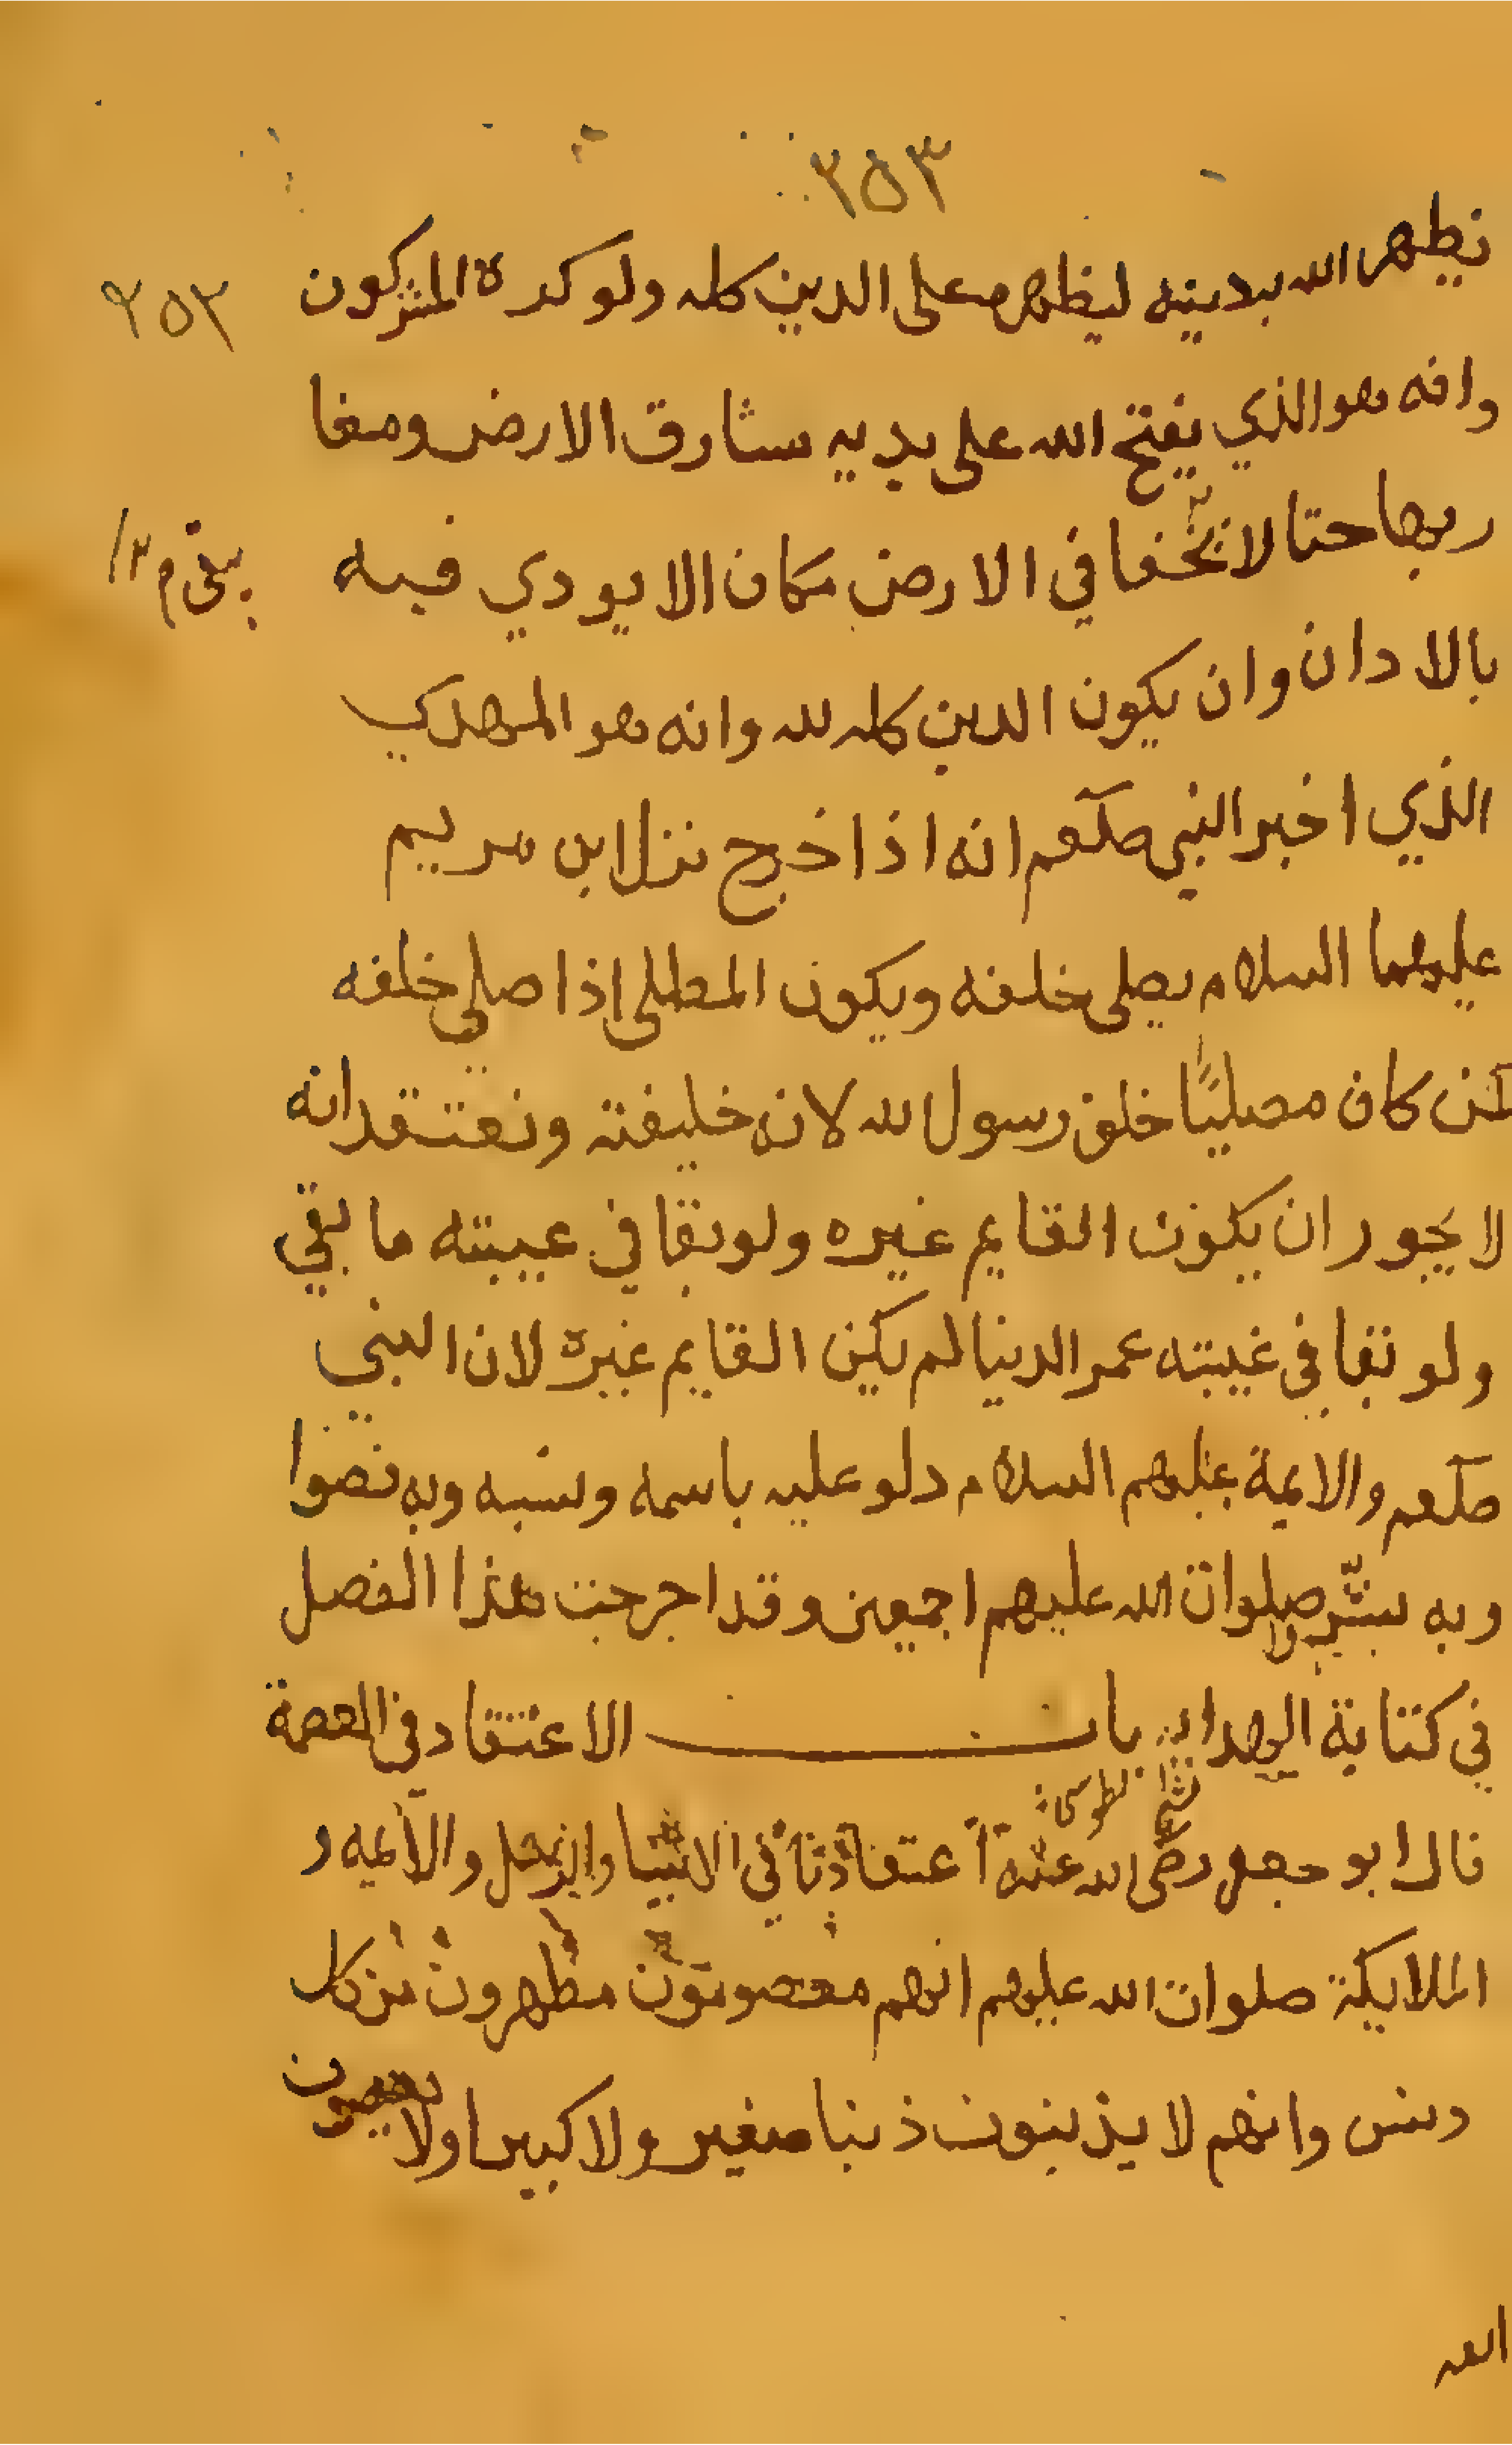 ٢٥٣
نطهر الله بدينه ليظهره على الدين كله ولو كره المشركون
٢٥٣
وانه هو الذي يفتح الله على يديه مشارق الارض ومغا
ربها حتا لا يخفا في الارض مكان الا يودي فيه
بالادان وان يكون الدين كله لله وانه هو المهدي
الذي اخبر النبي صلعم انه اذا خرج نزل ابن مريم
عليهما السلام يصلي خلفه ويكون المصلي اذا صلي خلفه
كمن كان مصليًا خلف رسول لله لانه خليفته ونعتقد انه
لا يجور ان يكون القايم غيره ولو بقا في عيبته ما بقي
ولو بقا في غيبته عمر الدينا لم يكن القايم غيره لان النبي
صلعم والايمة عليهم السلام دلو عليه باسمه ونسبه وبه نصوا
وبه بشر صلوات الله عليهم اجمعين وقد اخرجت هذا الفصل
وا
في كتابة الهدايه باب الاعتقاد في العصمة
شيخ الطوسي
قال ابو جعفر رضي الله عنه اعتقادنا في الانبيا والرسل والأيمه و
الملايكة صلوات الله عليهم انهم معصومون مطهرون من كل
دنس وانهم لا يذنبون ذنبا صغير ولا كبيرا ولا يعصون
الله